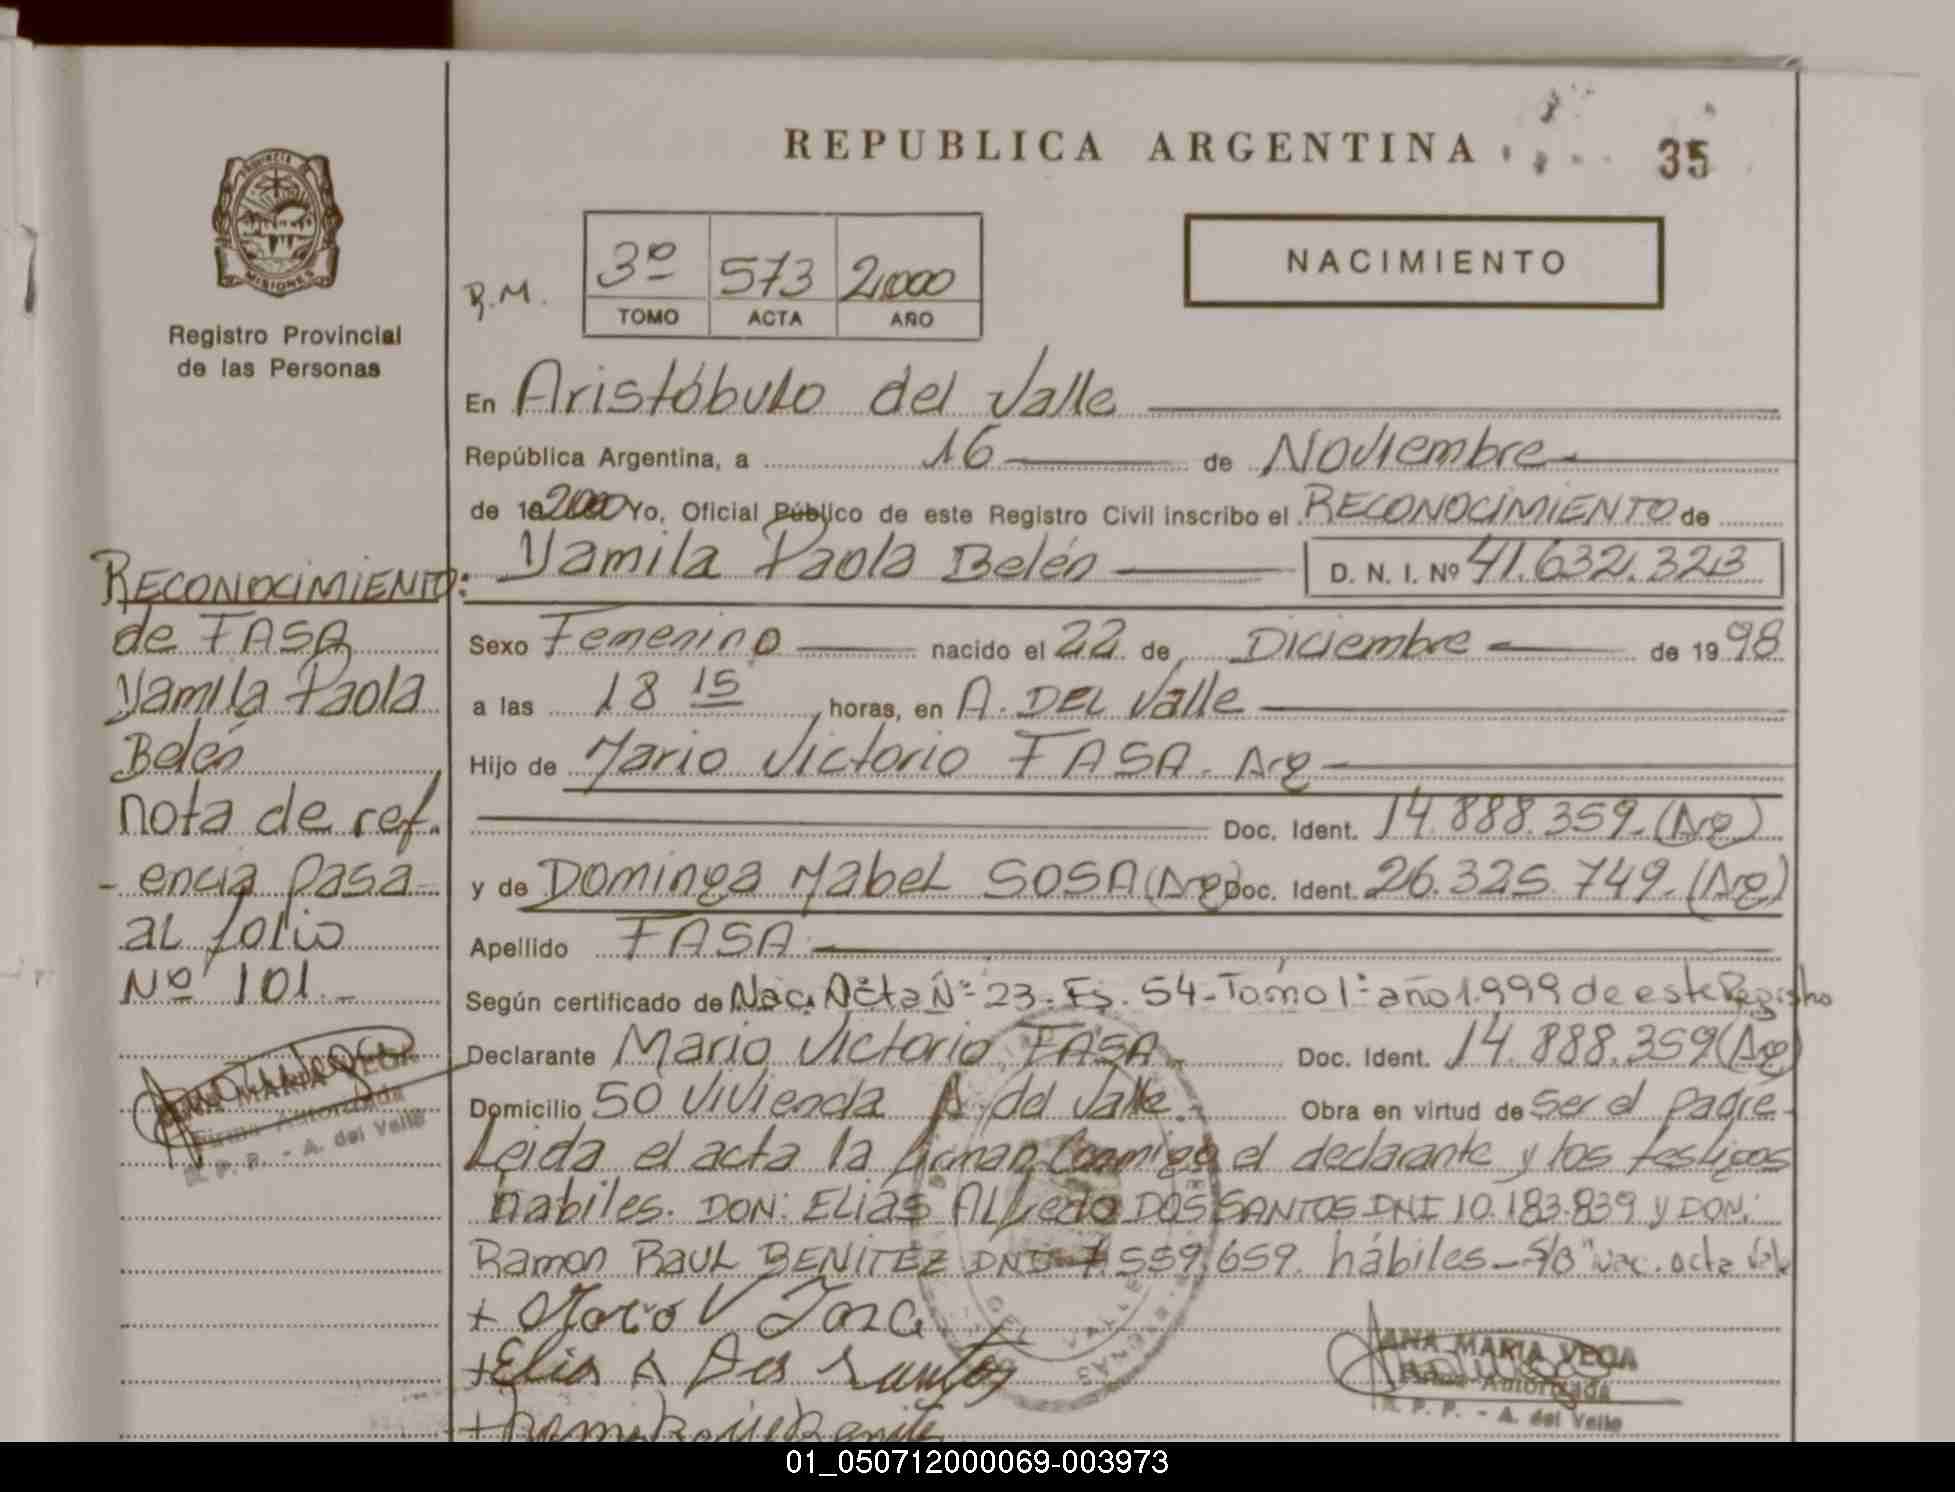 REPUBLICA ARGENTINA
35
PROVINCIA
MISIONES
Registro Provincial
de las Personas
R.M.
3º 573 2.000
TOMO ACTA AÑO
NACIMIENTO
En Aristóbulo del Valle
República Argentina, a 16 de Noviembre
de 2000 Yo, Oficial Público de este Registro Civil inscribo el RECONOCIMIENTO de
Yamila Paola Belén D. N. I. Nº 41.632.323
Sexo Femenino nacido el 22 de Diciembre de 1998
a las 18 15 horas, en A. DEL Valle
Hijo de Mario Victorio FASA. Arg
Doc. Ident. 14.888.359. (Arg)
y de Dominga Mabel SOSA (Arg) Doc. Ident. 26.325.749. (Arg)
Apellido FASA
Según certificado de Nac. Acta Nº 23-Fs. 54-Tomo 1º año 1.999 de este Registro
Declarante Mario Victorio FASA Doc. Ident. 14.888.359 (Arg)
Domicilio 50 Vivienda A. del Valle. Obra en virtud de Ser el padre
Leida el acta la firman Conmigo el declarante y los testigos
habiles. DON: ELIAS ALfredo DOS SANTOS DNI 10.183.839 y DON:
Ramon RAUL BENITEZ DNI 7.559.659. hábiles - S/B "Nac. acta Vale
+ Mario V Fasa
+ Elias A Dos Santos
RECONOCIMIENTO:
de FASA
Yamila Paola
Belén
nota de ref.
- encia pasa
al folio
Nº 101.-
ANA MARIA VEGA
Firma Autorizada
R. P. P. - A. del Valle
ANA MARIA VEGA
Firma Autorizada
R. P. P. - A. del Valle
DEL VALLE
01_050712000069-003973